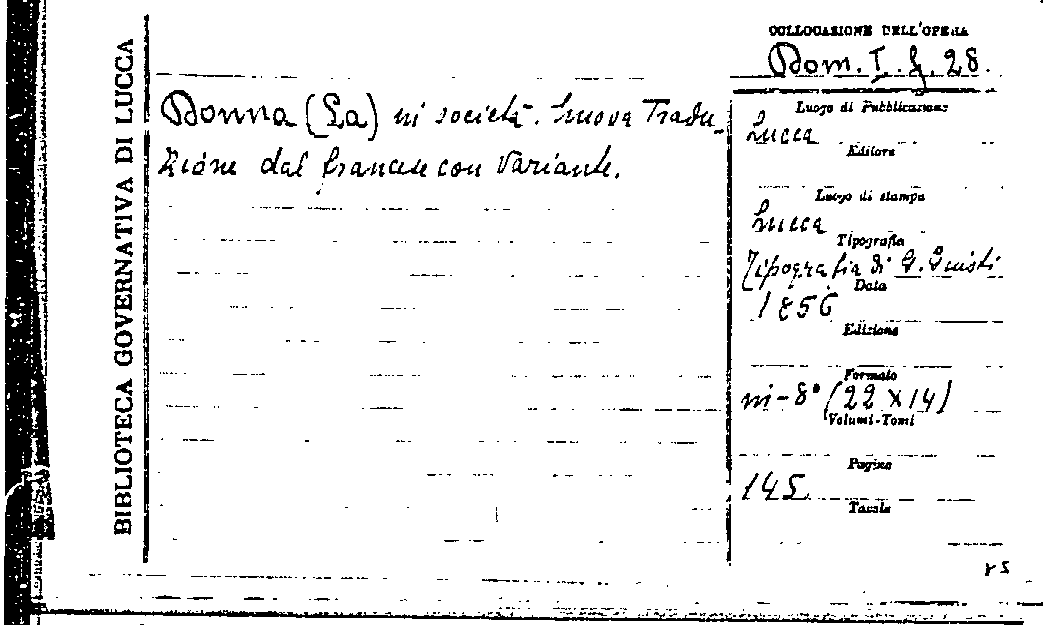 BIBLIOTECA GOVERNATIVA DI LUCCA
COLLOCAZIONE DELL'OPERA
Dom. I. g. 28.
Donna (La) in società. Nuova Tradu-
zione dal francese con Variante.
Luogo di Pubblicazione
Lucca
Editore
Luogo di stampa
Lucca
Tipografia
Tipografia di G. Giusti
Data
1856
Edizione
Formato
in-8° (22 x 14)
Volumi-Tomi
Pagine
145
Tavole